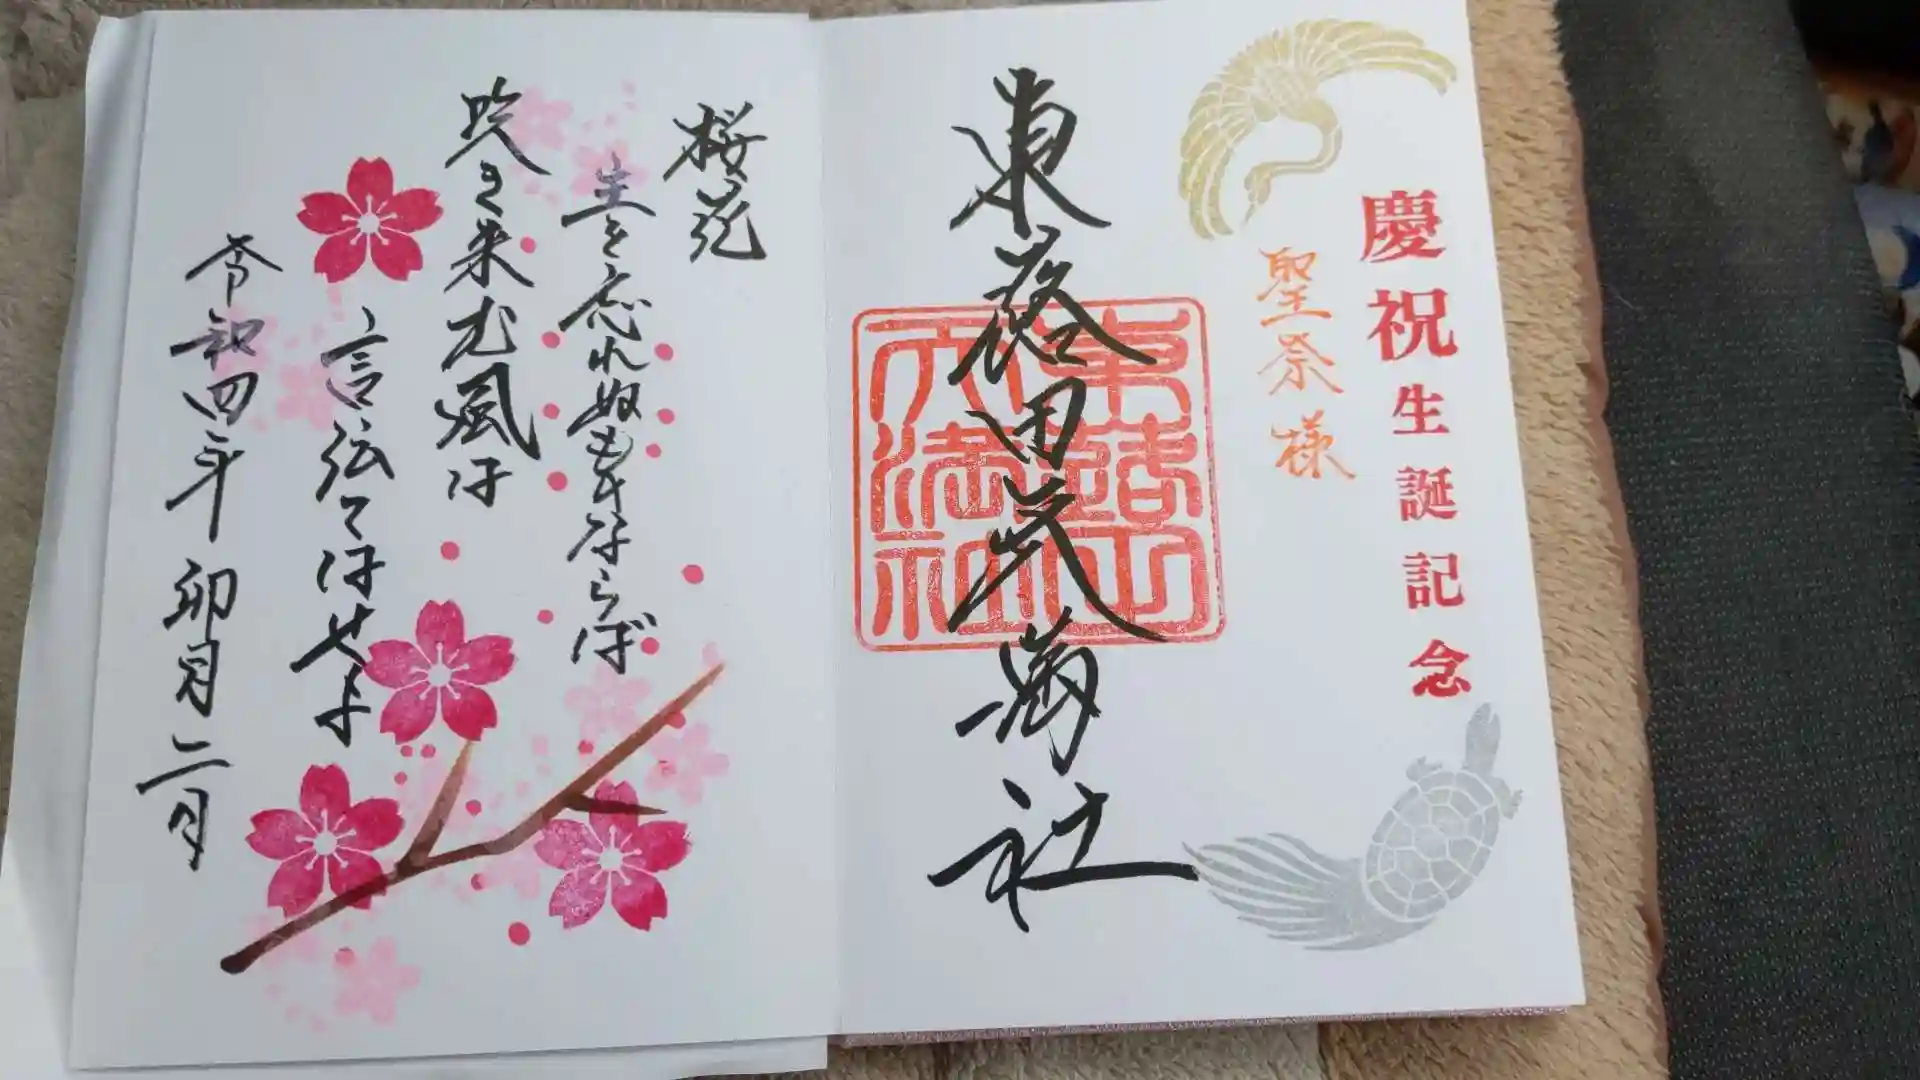 慶祝生誕記念
聖奈様
東蕗田天満社
東蕗田
天満社
桜花
主を忘れ奴ものならば
吹き来む風に
言伝てはせよ
令和四年卯月二日